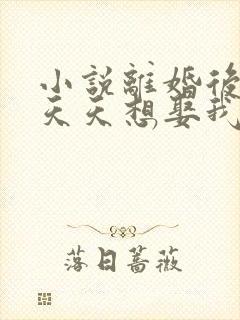 小說離婚後
天天想娶我
落日薔薇